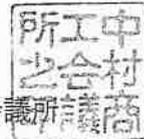 中村商
工会議
所之印
議所